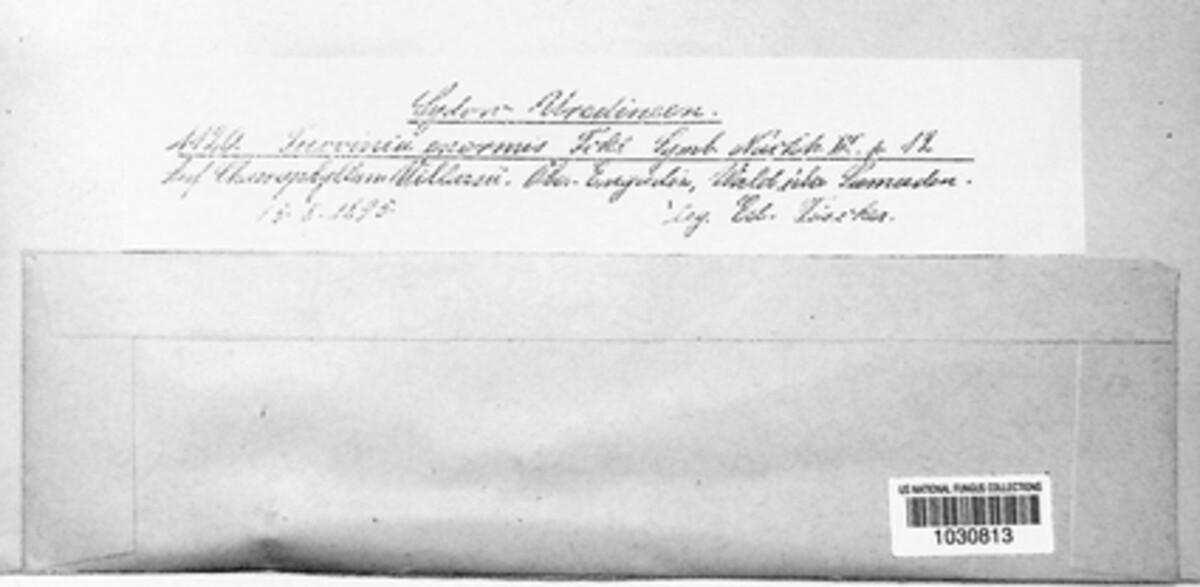 Sydow Uredineen.
1120. Puccinia enormis Fckl Symb. Nachtr. III. p. 12
Auf Chaerophyllum Villarsii. Ober-Engadin, Wald Samaden.
15. 8. 1895 leg. Ed. Fischer.
US NATIONAL FUNGUS COLLECTIONS
1030813